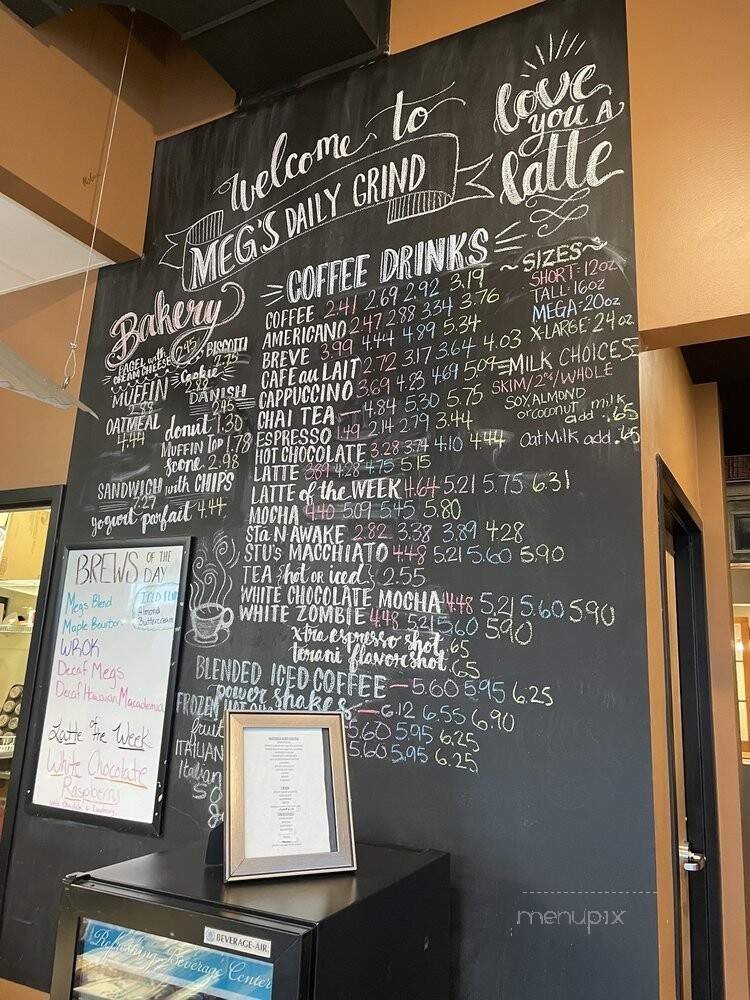 Welcome to
MEG'S DAILY GRIND
love
you A
latte
Bakery
BAGEL with
CREAM CHEESE 2.45
BISCOTTI
2.25
Cookie
MUFFIN
DANISH
2.45
OATMEAL
4.44
donut 1.30
MUFFIN TOP 1.78
scone 2.98
SANDWICH with CHIPS
7.27
yogurt parfait 4.44
COFFEE DRINKS
COFFEE 2.41 2.69 2.92 3.19
AMERICANO 2.47 2.88 3.34 3.76
BREVE 3.99 4.44 4.89 5.34
CAFÉ au LAIT 2.72 3.17 3.64 4.03
CAPPUCCINO 3.69 4.23 4.69 5.09
CHAI TEA — 4.84 5.30 5.75
ESPRESSO 1.49 2.14 2.79 3.44
HOT CHOCOLATE 3.28 3.74 4.10 4.44
LATTE 3.89 4.28 4.75 5.15
LATTE of the WEEK 4.64 5.21 5.75 6.31
MOCHA 4.40 5.09 5.45 5.80
Sta N AWAKE 2.82 3.38 3.89 4.28
STU'S MACCHIATO 4.48 5.21 5.60 5.90
TEA {hot or iced} 2.55
WHITE CHOCOLATE MOCHA 4.48 5.21 5.60 5.90
WHITE ZOMBIE 4.48 5.21 5.60 5.90
xtra espresso shot .65
torani flavor shot .65
BLENDED ICED COFFEE — 5.60 5.95 6.25
power shakes — 6.12 6.55 6.90
FROZEN HOT
fruit 5.60 5.95 6.25
ITALIAN 5.60 5.95 6.25
Italian
~SIZES~
SHORT: 12oz
TALL: 16oz
MEGA: 20oz
X-LARGE: 24oz
MILK CHOICES
SKIM/2%/WHOLE
SOY, ALMOND
or coconut milk
add .65
Oat Milk add .65
BREWS OF THE DAY
Megs Blend
Maple Bourbon
WROK
Decaf Megs
Decaf Hawaiian Macadamia
Almond
Buttercream
Latte of the Week
White Chocolate
Raspberry
BEVERAGE-AIR
Refreshing Beverage Center
menupix